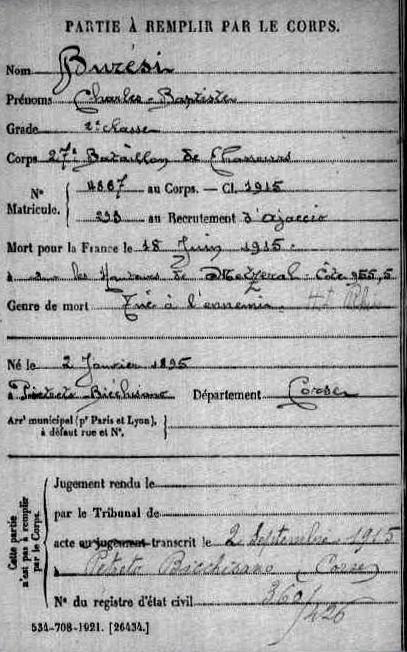 PARTIE À REMPLIR PAR LE CORPS.
Nom Burési
Prénoms Charles-Baptiste
Grade 2e classe
Corps 27e Bataillon de Chasseurs
N° Matricule. 4887 au Corps. — Cl. 1915
293 au Recrutement d'Ajaccio
Mort pour la France le 18 Juin 1915.
à sur les Hauteurs de Metzeral - Côte 955,5
Genre de mort Tué à l'ennemi. Ht Rhin
Né le 2 Janvier 1895
à Pietreto Bicchisano Département Corse
Arrt municipal (pr Paris et Lyon), à défaut rue et N°.
Cette partie n'est pas à remplir par le Corps.
Jugement rendu le
par le Tribunal de
acte ou jugement transcrit le 2 Septembre 1915
à Petreto Bicchisano (Corse)
N° du registre d'état civil 360/426
534-708-1921. [26434.]